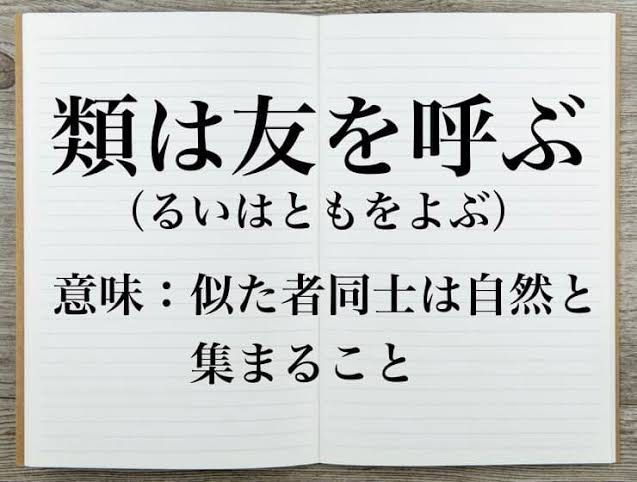 類は友を呼ぶ
（るいはともをよぶ）
意味：似た者同士は自然と
集まること